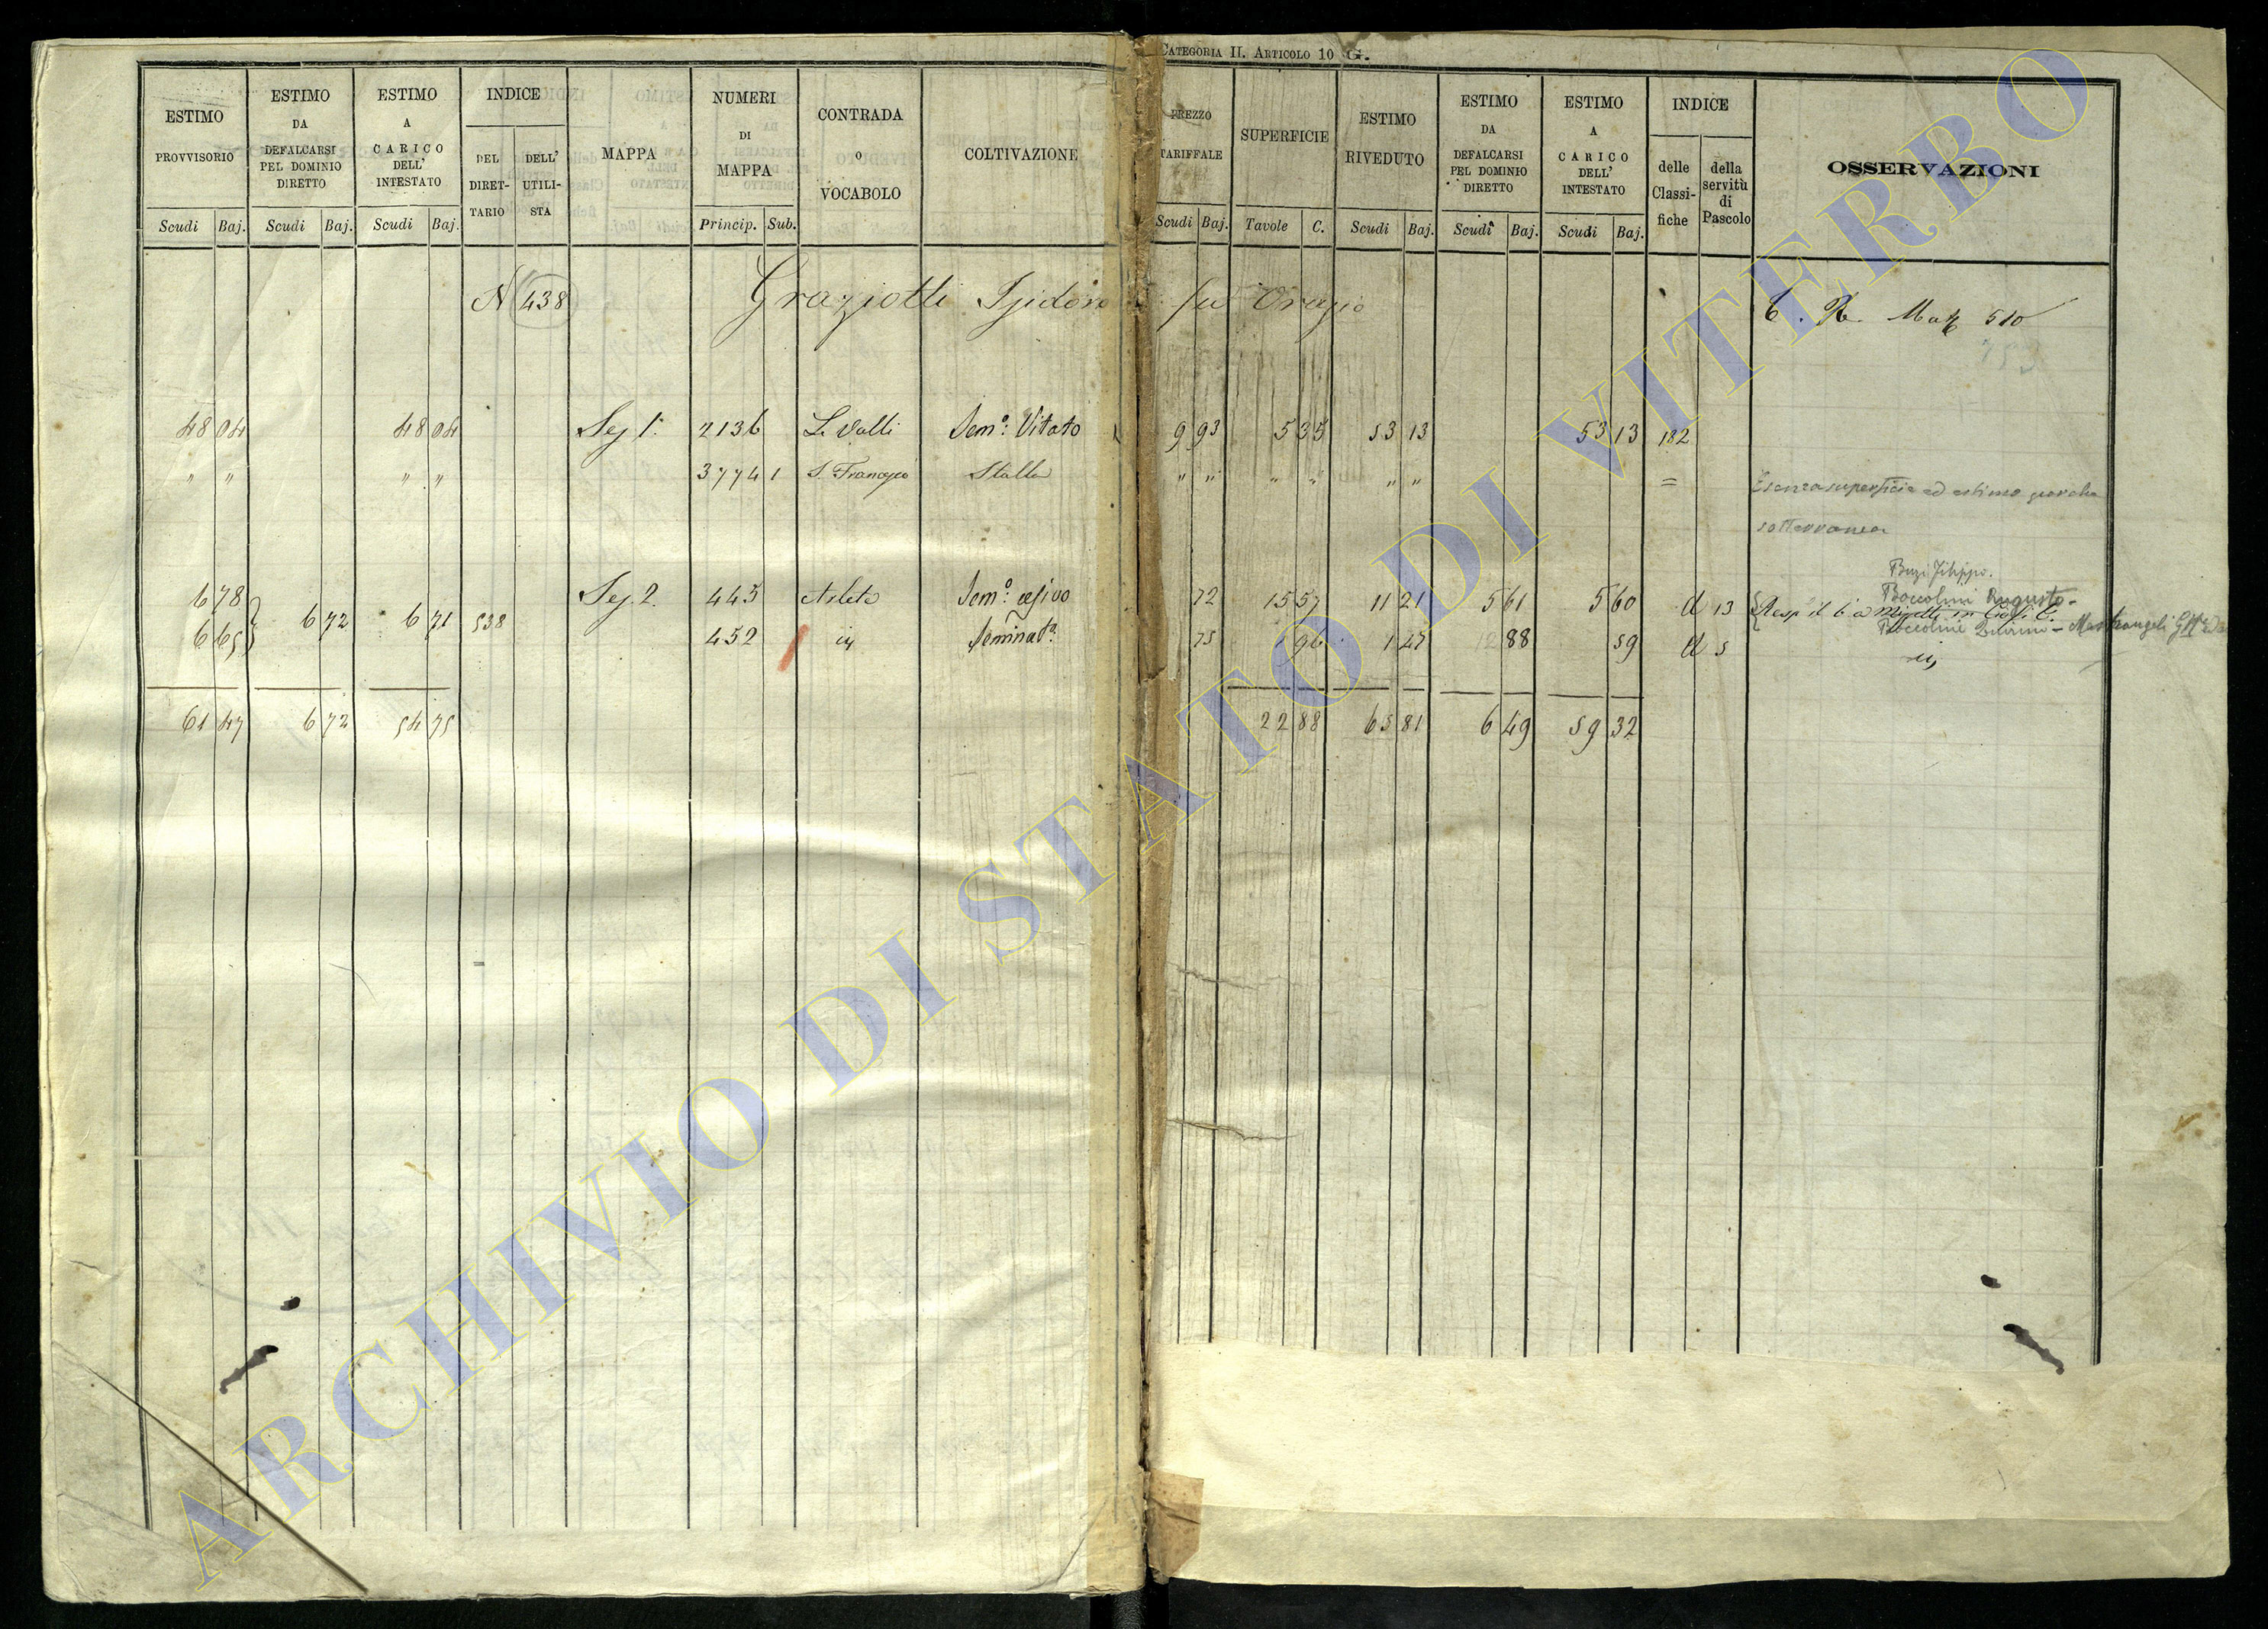 CATEGORIA II. ARTICOLO 10 G.
ESTIMO PROVVISORIO Scudi Baj.
ESTIMO DA DEFALCARSI PEL DOMINIO DIRETTO Scudi Baj.
ESTIMO A CARICO DELL' INTESTATO Scudi Baj.
INDICE DEL DIRET-TARIO DELL' UTILI-STA
MAPPA
NUMERI DI MAPPA Princip. Sub.
CONTRADA O VOCABOLO
COLTIVAZIONE
PREZZO TARIFFALE Scudi Baj.
SUPERFICIE Tavole C.
ESTIMO RIVEDUTO Scudi Baj.
ESTIMO DA DEFALCARSI PEL DOMINIO DIRETTO Scudi Baj.
ESTIMO A CARICO DELL' INTESTATO Scudi Baj.
INDICE delle Classi-fiche della servitù di Pascolo
OSSERVAZIONI
N 438 Graziotti Isidoro fu Orazio 510
48 04 48 04 Sez 1ª 2136 Le Valli Semº: Vitato 9 93 5 35 53 13 53 13 182
" " " " 3774 1 S. Francesco Stalla " " " " " " = Esenza superficie ed estimo perche
sotterranea
Buzi Filippo.
Boccolini Augusto
6 78 6 72 6 71 538 Sez. 2. 443 Semº: 72 15 57 11 21 5 61 5 60 d 13
6 65 452 Seminatº 75 1 96 1 47 88 59 d 5
61 47 6 72 54 75 22 88 65 81 6 49 59 32
ARCHIVIO DI STATO DI VITERBO